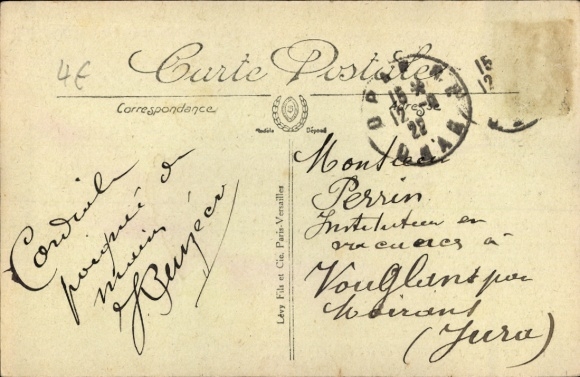 4€
Carte Postale
Correspondance
Adresse
Modèle Déposé
15
12
15 *
12 - 5
22
Cordiale
poignée de
main
Monsieur
Perrin
Instituteur en
vacances à
Vouglans par
Moirans
(Jura)
Lévy Fils et Cie, Paris-Versailles